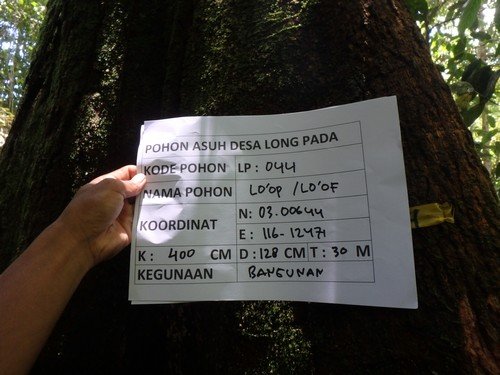 POHON ASUH DESA LONG PADA
KODE POHON LP : 044
NAMA POHON LO'OP /LO'OF
KOORDINAT
N: 03.00644
E : 116-12471
K : 400 CM D : 128 CM T : 30 M
KEGUNAAN BANGUNAN